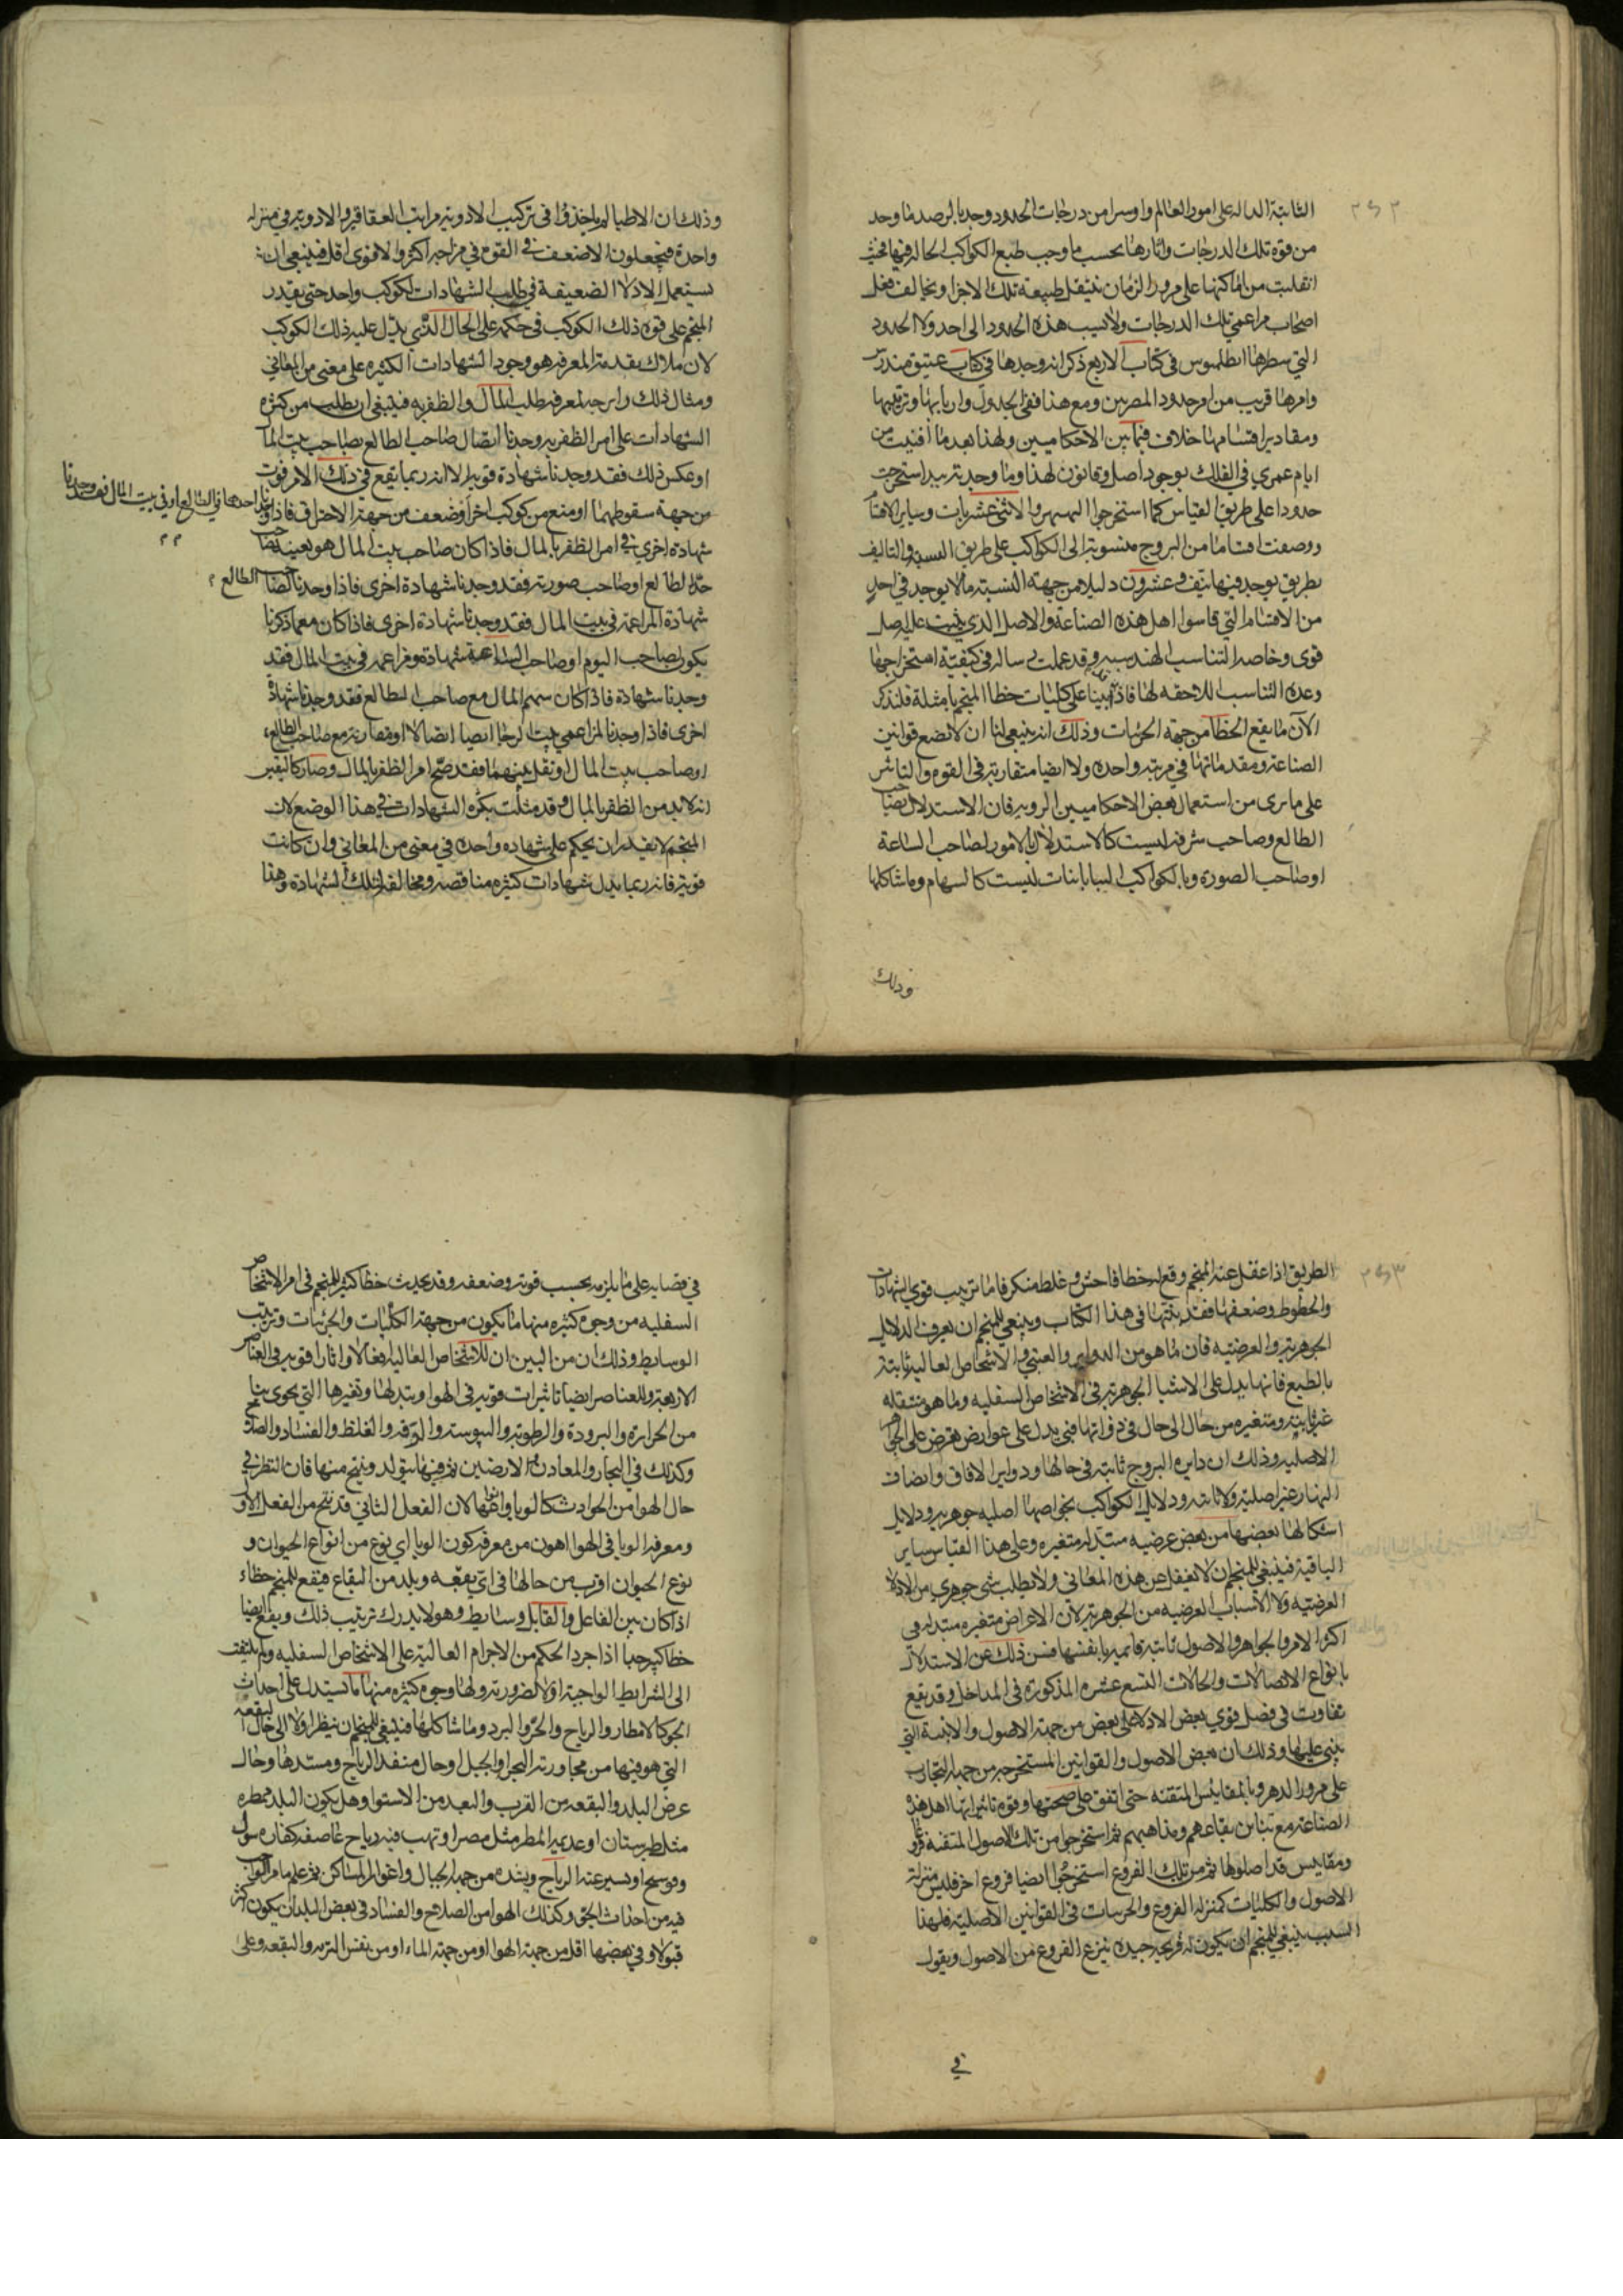 ٢٤٢
الثابتة الداله على امور العالم واوسرا من درجات الحدود وجدنا لرصد ما وجد
من قوة تلك الدرجات واثارها بحسب ما وجب طبع الكواكب الحاله فيها فحيث
انقلبت من اماكنها على مرور الزمان ينتقل طبيعة تلك الاجزا ويخالف فعل
اصحاب مزاعمي تلك الدرجات ولا نسب هذه الحدود الى احد ولا الحدود
التي سطرها ابطلميوس في كتاب الاربع ذكر انه وجدها في كتاب عتيق مندرس
وامرها قريب من امر حدود المصريين ومع هذا ففي الجدول واربابها وترتيبها
ومقادير اقسامها خلاف فيما بين الاحكاميين ولهذا بعد ما افنيت من
ايام عمري في الفلك بوجود اصل وقانون لهذا وما وجدته استخرجت
حدودا على طريق القياس كما استخرجوا النهبهرات والاثني عشريات وساير الاقسام
ووضعت اقساما من البروج منسوبة الى الكواكب على طريق النسبة والتاليف
بطريق يوجد فيها نيف وعشرون دليلا من جهة النسبة ما لا يوجد في احد
من الاقسام التي قاسوا اهل هذه الصناعة والاصل الذي يثبت عليه اصل
قوى وخاصه التناسب الهندسيه وقد عملت رساله في كيفية استخراجها
وعدة التناسب اللاحقه لها فاذ اتينا على كليات خطا المنجم بامثلة فلنذكر
الآن ما يقع الخطأ من جهة الجزئيات وذلك انه ينبغي لنا ان لا نضع قوانين
الصناعة ومقدماتها في مرتبه واحده ولا ايضا متقاربة في القوه والتاثير
على ما نرى من استعمال بعض الاحكاميين الرويه فان الاستدلال بصاحب
الطالع وصاحب شرفه ليست كالاستدلال بالامور لصاحب الساعة
اوصاحب الصوره وبالكواكب البيابانيات ليست كالسهام وما شاكلها
وذلك
وذلك ان الاطبا لم ياخذوا في تركيب الادويه مراتب العقاقير والادويه في منزله
واحدة فيجعلون الاضعف في القوه في مزاجه اكثر والاقوى اقل فينبغي ان
يستعمل الادلا الضعيفة في طلب الشهادات لكوكب واحد حتى يقدر
المنجم على قوه ذلك الكوكب في حكمه على الحال الذي يدل عليه ذلك الكوكب
لان ملاك تقدمة المعرفه هو وجود الشهادات الكثيره على معنى من المعاني
ومثال ذلك وان جد لمعرفه طلب المال والظفر به فينبغي ان يطلب من كثره
الشهادات على امر الظفر به وجدنا اتصال صاحب الطالع بصاحب بيت المال
او عكس ذلك فقد وجدنا شهادة قويه الا انه ربما يقع في ذلك الامر فوت
من جهة سقوطهما او منع من كوكب اخر او ضعف من جهة الاحتراق فاذا وجدنا
احدهما في الطالع او في بيت المال فقد وجدنا
شهادة اخرى في امر الظفر بالمال فاذا كان صاحب بيت المال هو بعينه صاحب
حد الطالع اوصاحب صورته فقد وجدنا شهادة اخرى فاذا وجدنا لصاحب الطالع
شهادة المزاعمة في بيت المال فقد وجدنا شهادة اخرى فاذا كان مع ما ذكرنا
يكون لصاحب اليوم اوصاحب الساعة شهادة ومزاعمه في بيت المال فقد
وجدنا شهادة فاذا كان سهم المال مع صاحب الطالع فقد وجدنا شهادة
اخرى فاذا وجدنا لمزاعمي بيت الرجا ايضا اتصالا او مقارنة مع صاحب الطالع
اوصاحب بيت المال او نقل بينهما فقد صح امر الظفر بالمال وصار كاليقين
انه لا بد من الظفر بالمال وقد مثلت بكثره الشهادات في هذا الوضع لان
المنجم لا يقدر ان يحكم على شهاده واحده في معنى من المعاني وان كانت
قويه فانه ربما يدل شهادات كثيره مناقضه ومخالفة لتلك الشهادة وهذا
٢٤٣
الطريق اذا غفل عنه المنجم وقع له خطا فاحش وغلط منكر فاما ترتيب قوى الشهادات
والحظوظ وضعفها فقد بينتها في هذا الكتاب وينبغي للمنجم ان يعرف الدلايل
الجوهرية والعرضيه فان ما هو من الدواير والعبتي والاشخاص العالية ثابتة
بالطبع فانها يدل على الاشيا الجوهرية في الاشخاص السفليه وما هو متنقله
غير ثابته ومتغيره من حال الى حال في ذواتها فهي يدل على عوارض تعرض على الجواهر
الاصليه وذلك ان دايره البروج ثابته في حالها ودواير الافاق وانصاف
النهار غير اصلية ولا ثابته ودلايل الكواكب بخواصها اصليه جوهريه ودلايل
اشكالها بعضها من بعض عرضيه متبدله متغيره وعلى هذا القياس ساير
الباقية فينبغي للمنجم ان لا يغفل عن هذه المعاني ولا يطلب شي جوهري من الادلا
العرضيه ولا الاسباب العرضيه من الجوهرية لان الاعراض متغيره متبدله في
اكثر الامر والجواهر والاصول ثابته قائمه بانفسها فمن ذلك عن الاستدلال
بانواع الاتصالات والحالات التسع عشره المذكورة في المداخل وقد يقع
تفاوت في فضل قوي بعض الادلا على بعض من جهة الاصول والابنية التي
يبنى عليها وذلك ان بعض الاصول والقوانين المستخرجه من جهة التجارب
على مرور الدهر وبالمقاييس المتقنه حتى اتفق على صحتها وقوه تاثيراتها اهل هذه
الصناعة مع تباين بقاعهم ومذاهبهم ثم استخرجوا من تلك الاصول المتقنه فروعا
ومقاييس قد اصلوها ثم من تلك الفروع استخرجوا ايضا فروع اخر فليس منزلة
الاصول والكليات كمنزلة الفروع والجزييات في القوانين الاصلية فلهذا
السبب ينبغي للمنجم ان يكون له قريحه جيده ينزع الفروع من الاصول ويقول
في
في قضايه على ما يلزمه بحسب قوته وضعفه وقد يحدث خطا كثير للمنجم في امر الاشخاص
السفليه من وجوه كثيره منها ما يكون من جهة الكليات والجزئيات وترتيب
الوسايط وذلك ان من البين ان للاشخاص العالية افعالا واثارا قويه في العناصر
الاربعة وللعناصر ايضا تاثيرات قويه في الهوا وتبدلها وتغيرها التي يحوى بنا
من الحرارة والبرودة والرطوبة واليبوسة والرقه والغلظ والفساد والصلاح
وكذلك في البحار والمعادن والارضين ثم فيما يتولد وينتج منها فان النظر في
حال الهوا من الحوادث كالوبا وانواعها لان الفعل الثاني قد نتج من الفعل الاول
ومعرفة الوبا في الهوا اهون من معرفة كون الوبا اي نوع من انواع الحيوان و
نوع الحيوان اقرب من حالها في اي بقعه وبلد من البقاع فيقع للمنجم خطاء
اذا كان بين الفاعل والقابل وسايط وهو لا يدرك ترتيب ذلك ويقع ايضا
خطا كبير جدا اذا جرد الحكم من الاجرام العالية على الاشخاص السفليه ولم يلتفت
الى الشرايط الواجبة او الضرورية ولها وجوه كثيره منها ما يستدل على احداث
الجو كالامطار والرياح والحر والبرد وما شاكلها فينبغي للمنجم ان ينظر اولا الى حال البقعه
التي هو فيها من مجاورته البحر او الجبل او حال منفذ الرياح ومستدها وحال
عرض البلد والبقعة من القرب والبعد من الاستوا وهل يكون البلد ممطره
مثل طبرستان او عديمة المطر مثل مصر او تهب فيه رياح عاصفه كفاره سول
وفوسح او يسير عنه الرياح ويشده من جهة الجبال واغوار المساكن ثم علم ما مر القوانين
فيه من احداث الجو وكذلك الهوا من الصلاح والفساد في بعض البلدان يكون اكثر
قبولا وفي بعضها اقل من جهة الهوا او من جهة الماء او من نفس التربه والبقعه وعلى